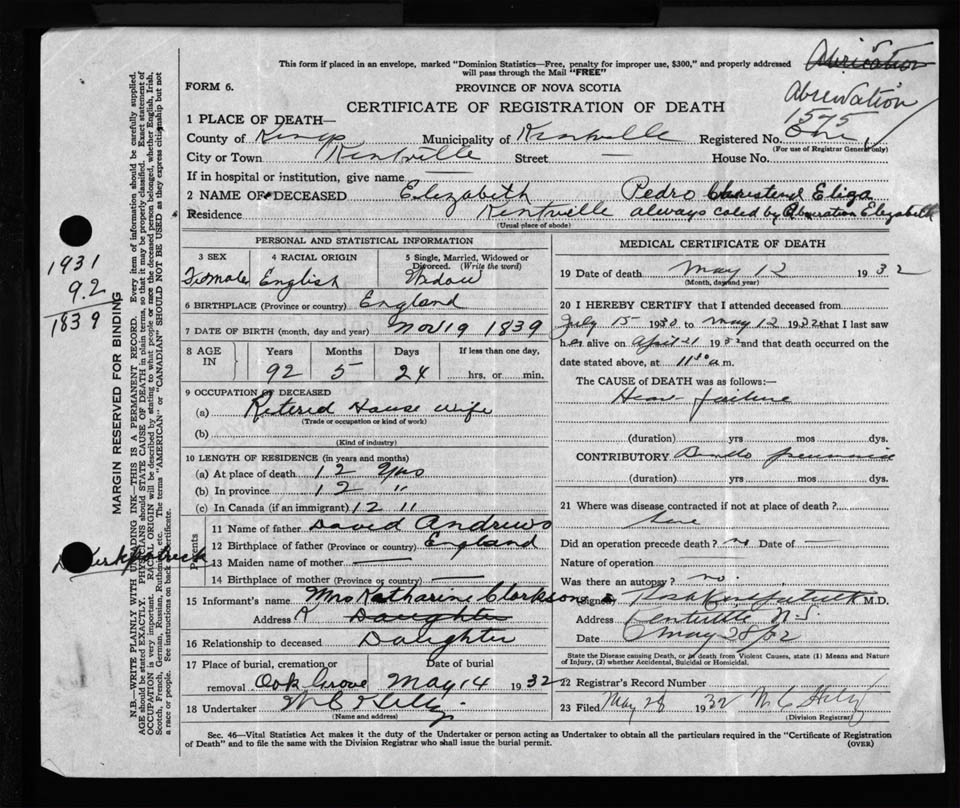 This form if placed in an envelope, marked "Dominion Statistics—Free, penalty for improper use, $300," and properly addressed
will pass through the Mail "FREE"
FORM 6.
PROVINCE OF NOVA SCOTIA
CERTIFICATE OF REGISTRATION OF DEATH
1575
1 PLACE OF DEATH—
County of Kings Municipality of Kentville Registered No.
(For use of Registrar General only)
City or Town Kentville Street — House No.
If in hospital or institution, give name —
2 NAME OF DECEASED Elizabeth Pedro Eliza
Residence Kentville always caled by Elizabeth
(Usual place of abode)
PERSONAL AND STATISTICAL INFORMATION
3 SEX 4 RACIAL ORIGIN 5 Single, Married, Widowed or
Divorced. (Write the word)
Female English Widow
6 BIRTHPLACE (Province or country) England
7 DATE OF BIRTH (month, day and year) Nov 19 1839
8 AGE IN Years Months Days If less than one day,
92 5 24 hrs. or min.
9 OCCUPATION OF DECEASED
(a) Retered House wife
(Trade or occupation or kind of work)
(b)
(Kind of industry)
10 LENGTH OF RESIDENCE (in years and months)
(a) At place of death 12 yrs
(b) In province 12 "
(c) In Canada (if an immigrant) 12 "
Parents
11 Name of father David Andrews
12 Birthplace of father (Province or country) England
13 Maiden name of mother —
14 Birthplace of mother (Province or country) —
15 Informant's name Mrs Katharine Clarkson
Address Daughter
16 Relationship to deceased Daughter
17 Place of burial, cremation or Date of burial
removal Oak Grove May 14 1932
18 Undertaker
(Name and address)
MEDICAL CERTIFICATE OF DEATH
19 Date of death May 12 1932
(Month, day and year)
20 I HEREBY CERTIFY that I attended deceased from
July 15 1930 to May 12 1932 that I last saw
her alive on April 21 1932 and that death occurred on the
date stated above, at 11 30 a m.
The CAUSE of DEATH was as follows:—
Heart failure
(duration) yrs mos dys.
CONTRIBUTORY pneumonia
(duration) yrs mos dys.
21 Where was disease contracted if not at place of death?
Did an operation precede death? no Date of —
Nature of operation —
Was there an autopsy? no.
(Signed) Kirkpatrick M.D.
Address Kentville N.S.
Date May 28/32
State the Disease causing Death, or in death from Violent Causes, state (1) Means and Nature
of Injury, (2) whether Accidental, Suicidal or Homicidal.
22 Registrar's Record Number
23 Filed May 28 1932
(Division Registrar)
Sec. 46—Vital Statistics Act makes it the duty of the Undertaker or person acting as Undertaker to obtain all the particulars required in the "Certificate of Registration
of Death" and to file the same with the Division Registrar who shall issue the burial permit.
(OVER)
1931
9.2
1839
Kirkpatrick
MARGIN RESERVED FOR BINDING
N.B.—WRITE PLAINLY WITH UNFADING INK—THIS IS A PERMANENT RECORD. Every item of information should be carefully supplied.
AGE should be stated EXACTLY. PHYSICIANS should STATE CAUSE OF DEATH in plain terms, so that it may be properly classified. Exact statement of
OCCUPATION is very important. RACIAL ORIGIN will be described by stating to what people or race the deceased person belonged, whether English, Irish,
Scotch, French, German, Russian, Ruthenian, etc. The terms "AMERICAN" or "CANADIAN" SHOULD NOT BE USED as they express citizenship but not
a race or people. See instructions on back of certificate.